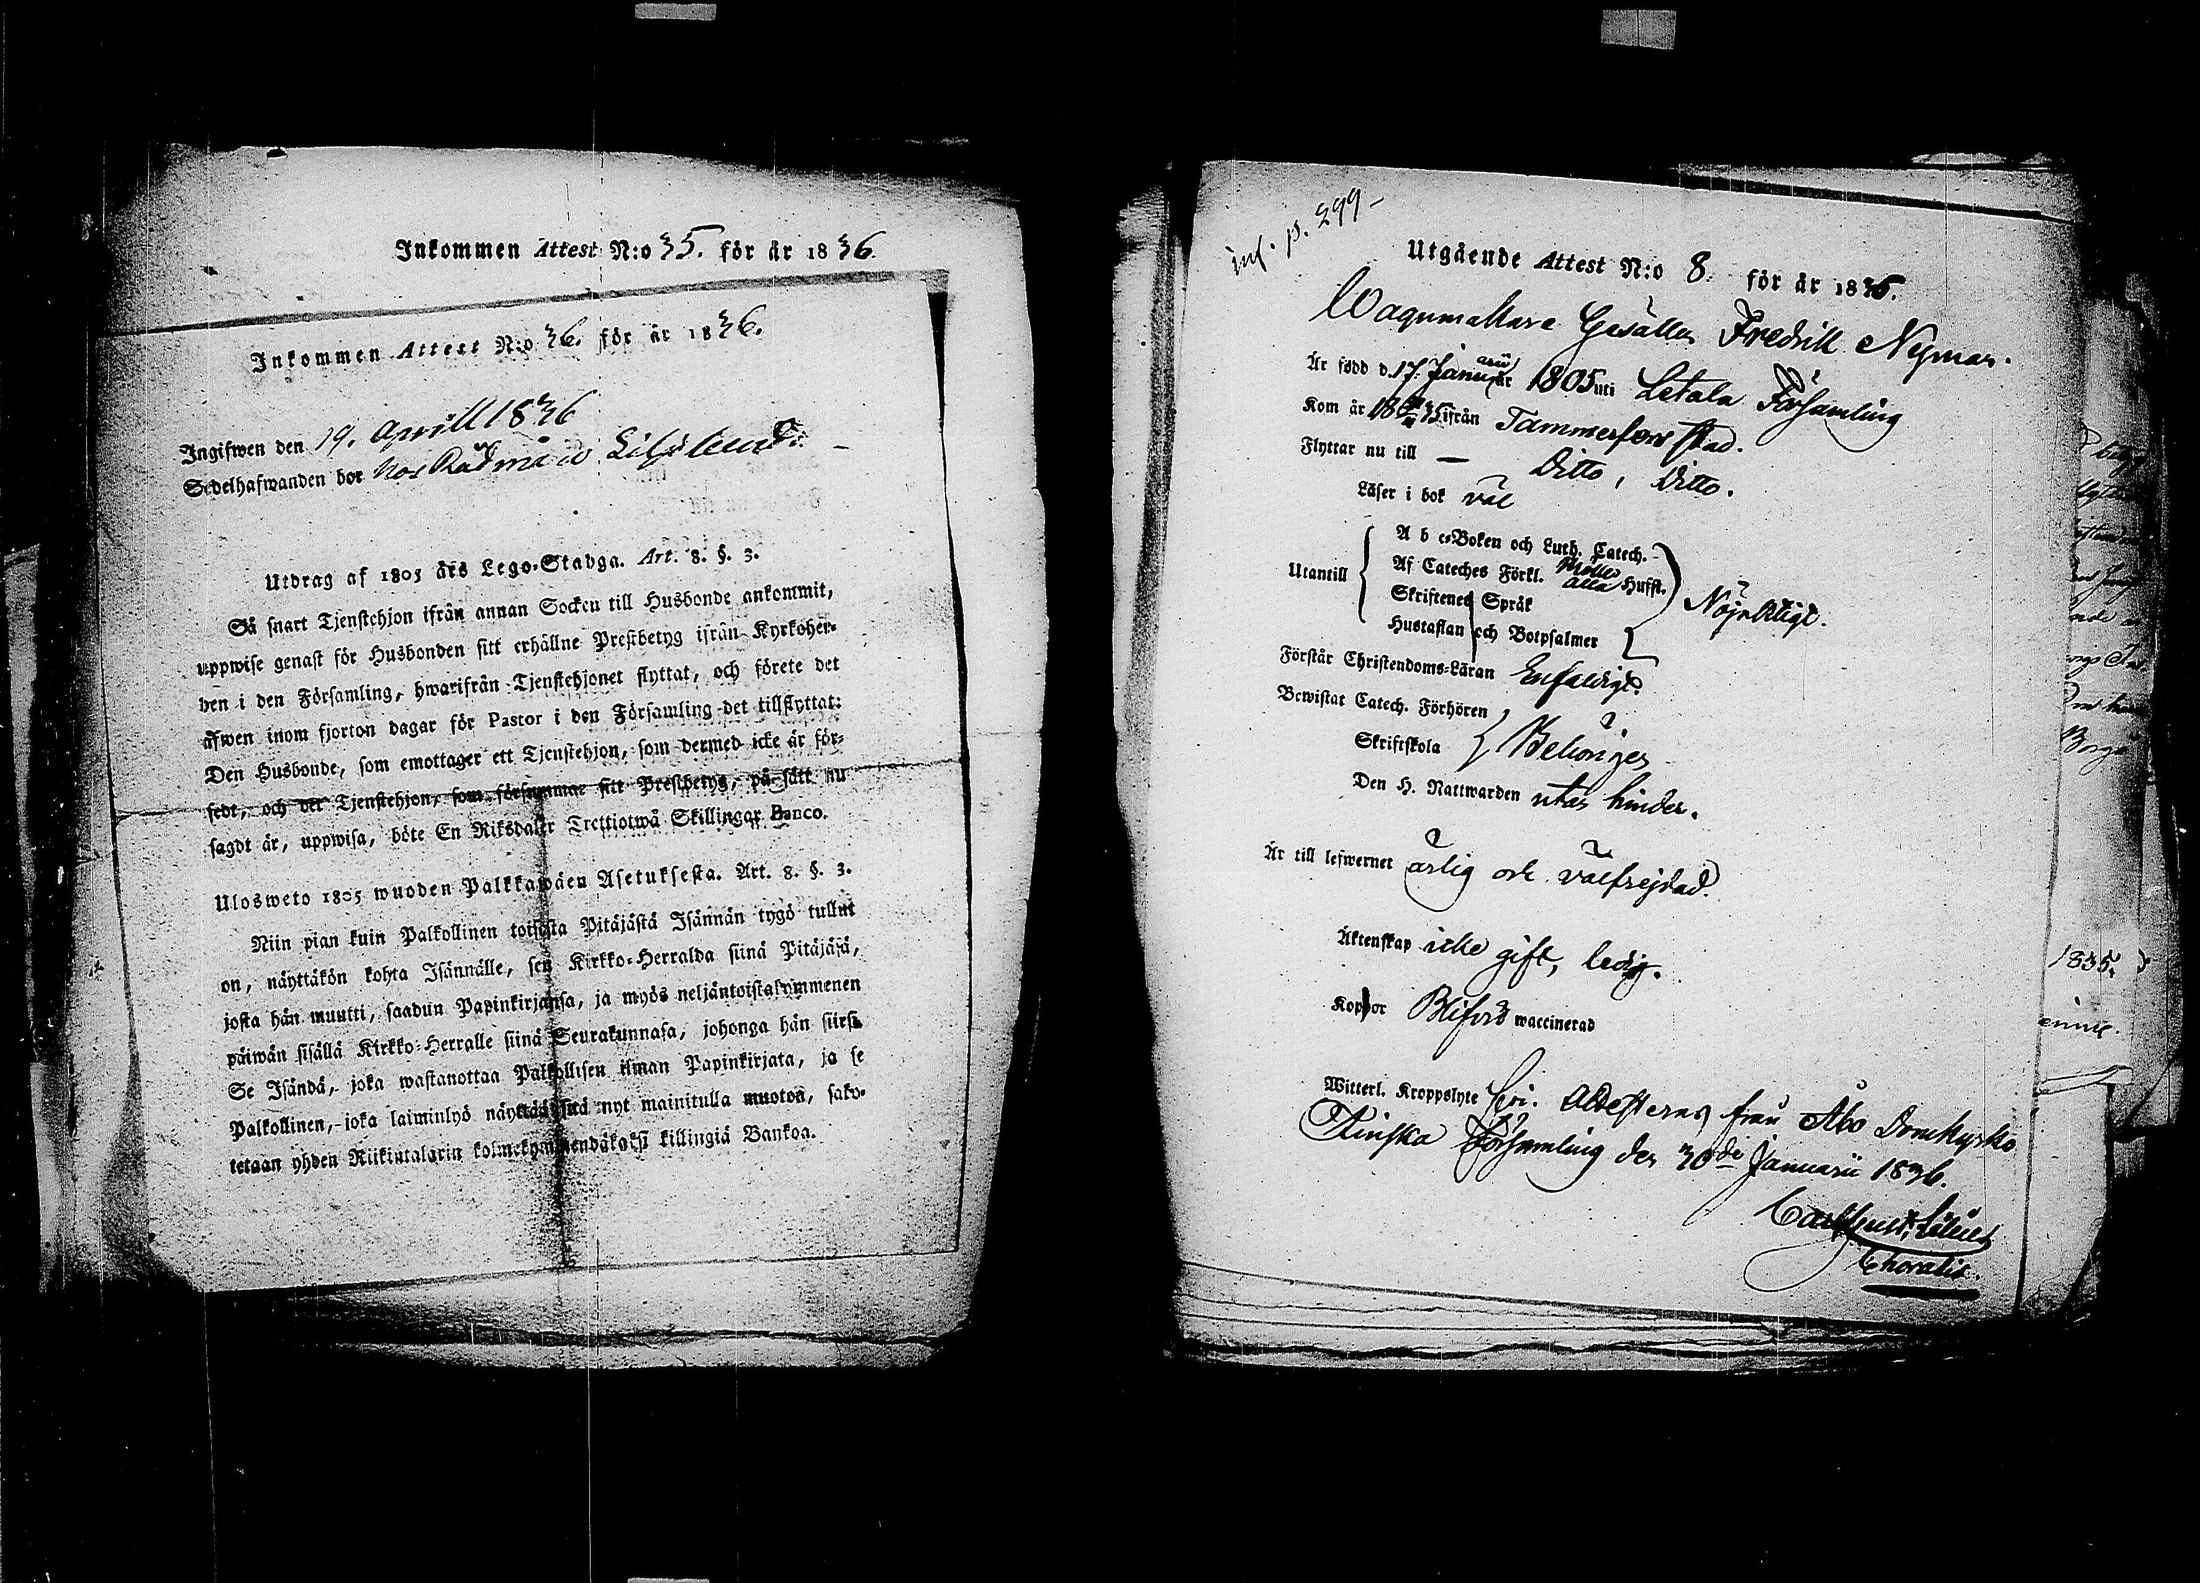 Inkommen Attest N:o 35. för år 1836.
Inkommen Attest N:o 36. för år 1836.
Ingifwen den 19. Aprill 1836
Sedelhafwanden bor hos Rådman
Utdrag af 1805 års Lego-Stadga. Art. 8. §. 3.
Så snart Tjenstehjon ifrån annan Socken till Husbonde ankommit,
uppwise genast för Husbonden sitt erhållne Prestbetyg ifrån Kyrkoher-
den i den Församling, hwarifrån Tjenstehjonet flyttat, och förete det
äfwen inom fjorton dagar för Pastor i den Församling det tillflyttat:
Den Husbonde, som emottager ett Tjenstehjon, som dermed icke är för-
sedt, och det Tjenstehjon, som försummar sitt Prestbetyg, på sätt nu
sagdt är, uppwisa, böte En Riksdaler Trettiotwå Skillingar Banco.
Ulosweto 1805 wuoden Palkkawäen Asetuksesta. Art. 8. §. 3.
Niin pian kuin Palkollinen toisesta Pitäjästä Isännän tygö tullut
on, näyttäkön kohta Isännälle, sen Kirkko-Herralda siinä Pitäjäsä,
josta hän muutti, saadun Papinkirjansa, ja myös neljäntoistakymmenen
päiwän sisällä Kirkko-Herralle siinä Seurakunnasa, johonga hän siirsi.
Se Isändä, joka wastanottaa Palkollisen ilman Papinkirjata, ja se
Palkollinen, joka laiminlyö näyttää sitä nyt mainitulla muoton, sako-
tetaan yhden Riikintalarin kolmekymmendäkaksi killingiä Bankoa.
inf. p. 299 –
Utgående Attest N:o 8. för år 1836.
Wagnmakare Gesällen Fredrik Nyman.
Är född d. 17. Januarii år 1805 uti Letala Församling
Kom år 1835 ifrån Tammerfors stad.
Flyttar nu till — Ditto, Ditto.
Läser i bok väl
A b c-Boken och Luth. Catech.
Utantill Af Cateches Förkl. alla Hufst.
Skriftenes Språk
Nöjaktigt.
Hustaflan och Botpsalmer
Förstår Christendoms-Läran Enfaldigt.
Bewistat Catech. Förhören
Skriftskola Behörigen
Den H. Nattwarden utan hinder.
Är till lefwernet ärlig och välfrejdad.
Äktenskap icke gift, ledig.
Koppor Blifvit waccinerad
Witterl. Kroppslyte fri. Attesteras från Åbo Domkyrko
Finska Församling den 30de Januarii 1836.
1835.